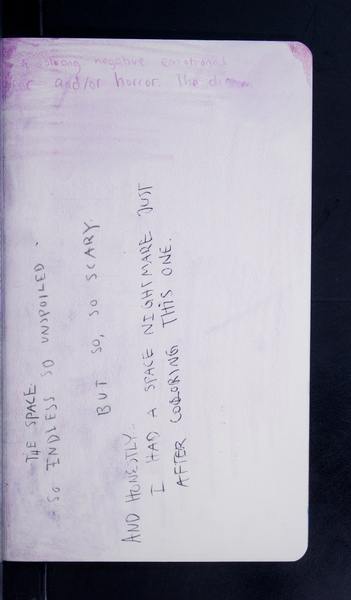 a strong negative emotional
and/or horror. The
THE SPACE.
SO ENDLESS SO UNSPOILED.
BUT SO, SO SCARY.
AND HONESTLY..
I HAD A SPACE NIGHTMARE JUST
AFTER COLORING THIS ONE.